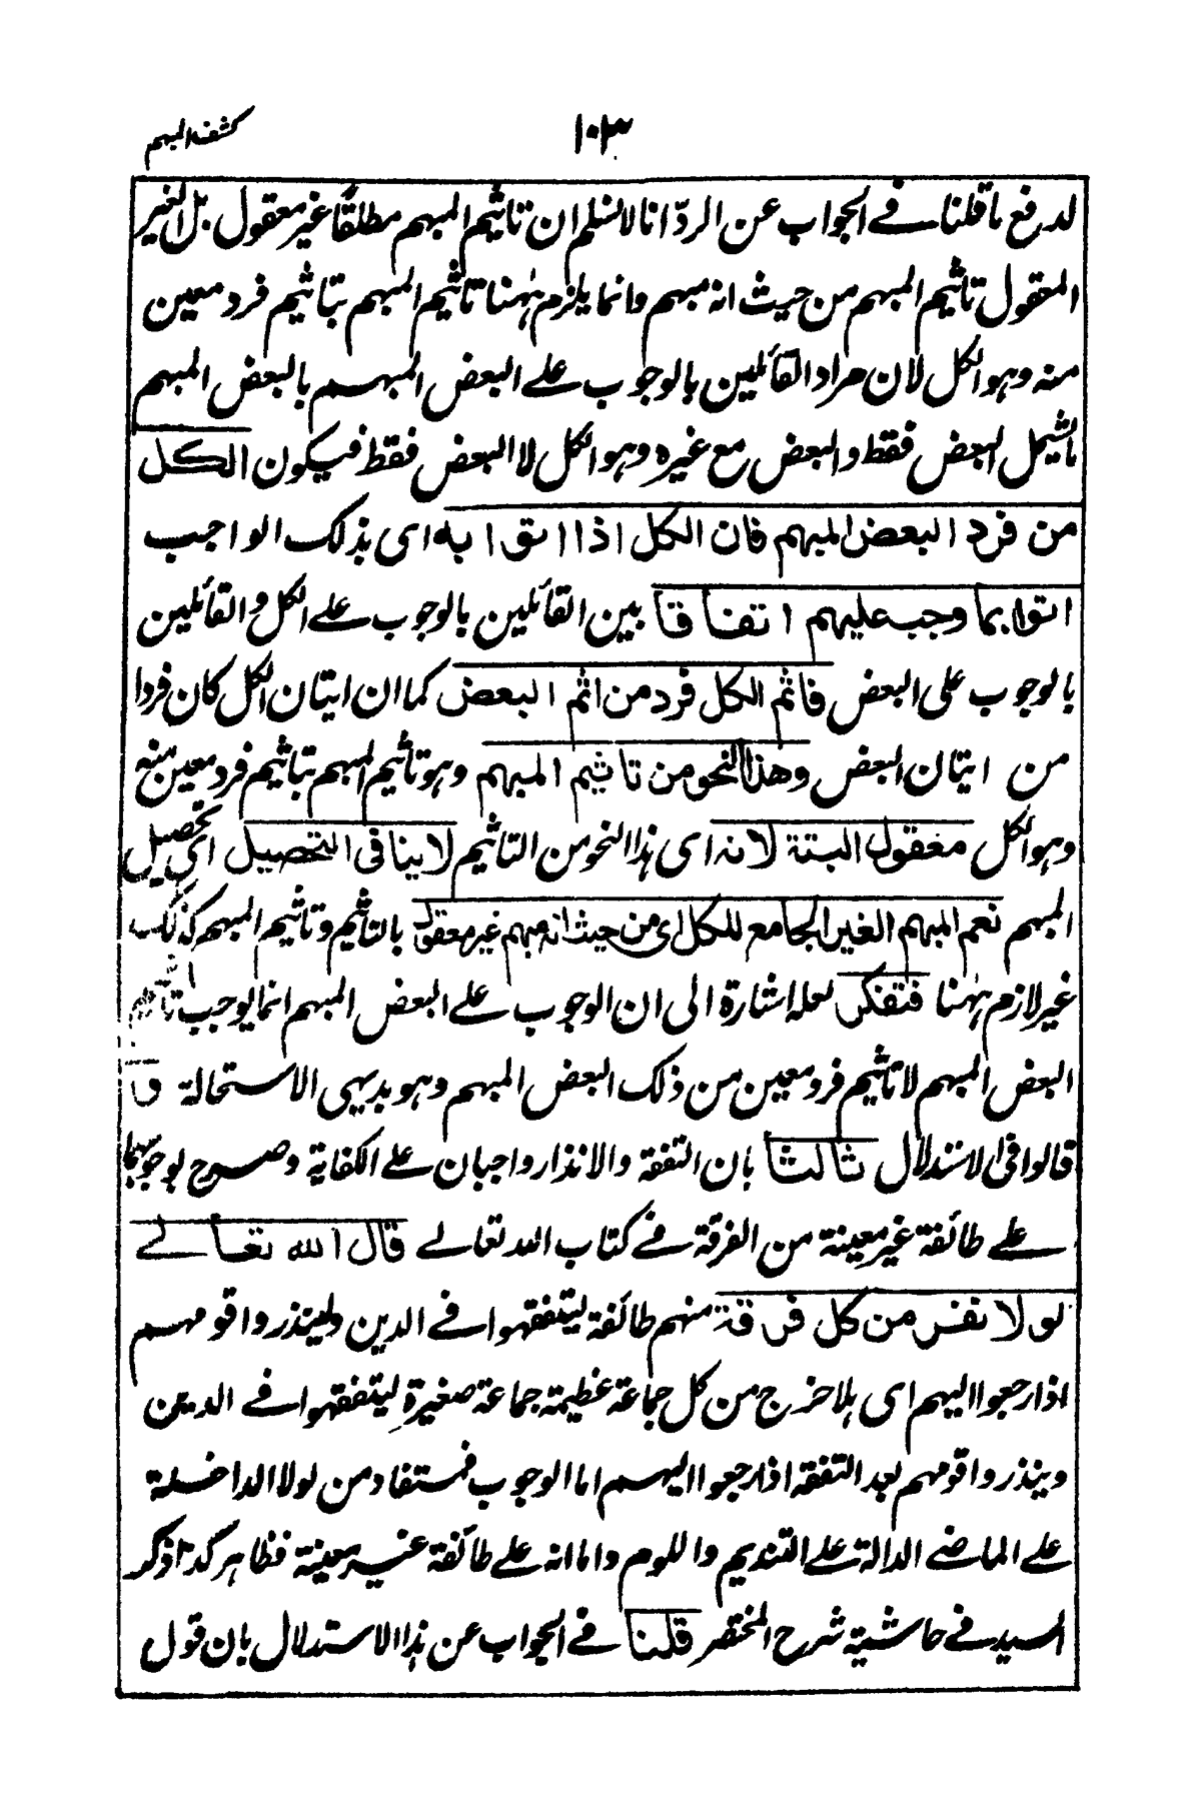 كشف المبهم
١٠٣
لدفع ما قلنا في الجواب عن الردّ انا لا نسلم ان تاثيم المبهم مطلقًا غير معقول بل الغير
المعقول تاثيم المبهم من حيث انه مبهم وانما يلزم ههنا تاثيم المبهم بتاثيم فرد معين
منه وهو الكل لان مراد القائلين بالوجوب على البعض المبهم بالبعض المبهم
ما يشمل البعض فقط والبعض مع غيره وهو الكل لا البعض فقط فيكون الكل
من فرد البعض المبهم فان الكل اذا اتوا به اى بذلك الواجب
اتوا بما وجب عليهم اتفاقا بين القائلين بالوجوب على الكل والقائلين
بالوجوب على البعض فاثم الكل فرد من اثم البعض كما ان ايتان الكل كان فردا
من ايتان البعض وهذا النحو من تاثيم المبهم وهو تاثيم المبهم بتاثيم فرد معين منه
وهو الكل معقول البتة لانه اى هذا النحو من التاثيم لا ينافى التحصيل اى تحصيل
المبهم نعم المبهم الغير الجامع للكل اى من حيث انه مبهم غير معقول بالتاثيم وتاثيم المبهم كذلك
غير لازم ههنا فتفكر لعله اشارة الى ان الوجوب على البعض المبهم انما يوجب تاثيم
البعض المبهم لا تاثيم فرد معين من ذلك البعض المبهم وهو بديهى الاستحالة
قالوا فى الاستدلال ثالثا بان التفقه والانذار واجبان على الكفاية وصرح بوجوبهما
على طائفة غير معينة من الفرقة في كتاب الله تعالى قال الله تعالى
لولا نفر من كل فرقة منهم طائفة ليتفقهوا في الدين ولينذروا قومهم
اذا رجعوا اليهم اى هلا خرج من كل جماعة عظيمة جماعة صغيرة ليتفقهوا في الدين
وينذروا قومهم بعد التفقه اذا رجعوا اليهم اما الوجوب فمستفاد من لولا الداخلة
على الماضى الدالة على التنديم واللوم واما انه على طائفة غير معينة فظاهر كذا ذكر
السيد في حاشية شرح المختصر قلنا في الجواب عن هذا الاستدلال بان قول